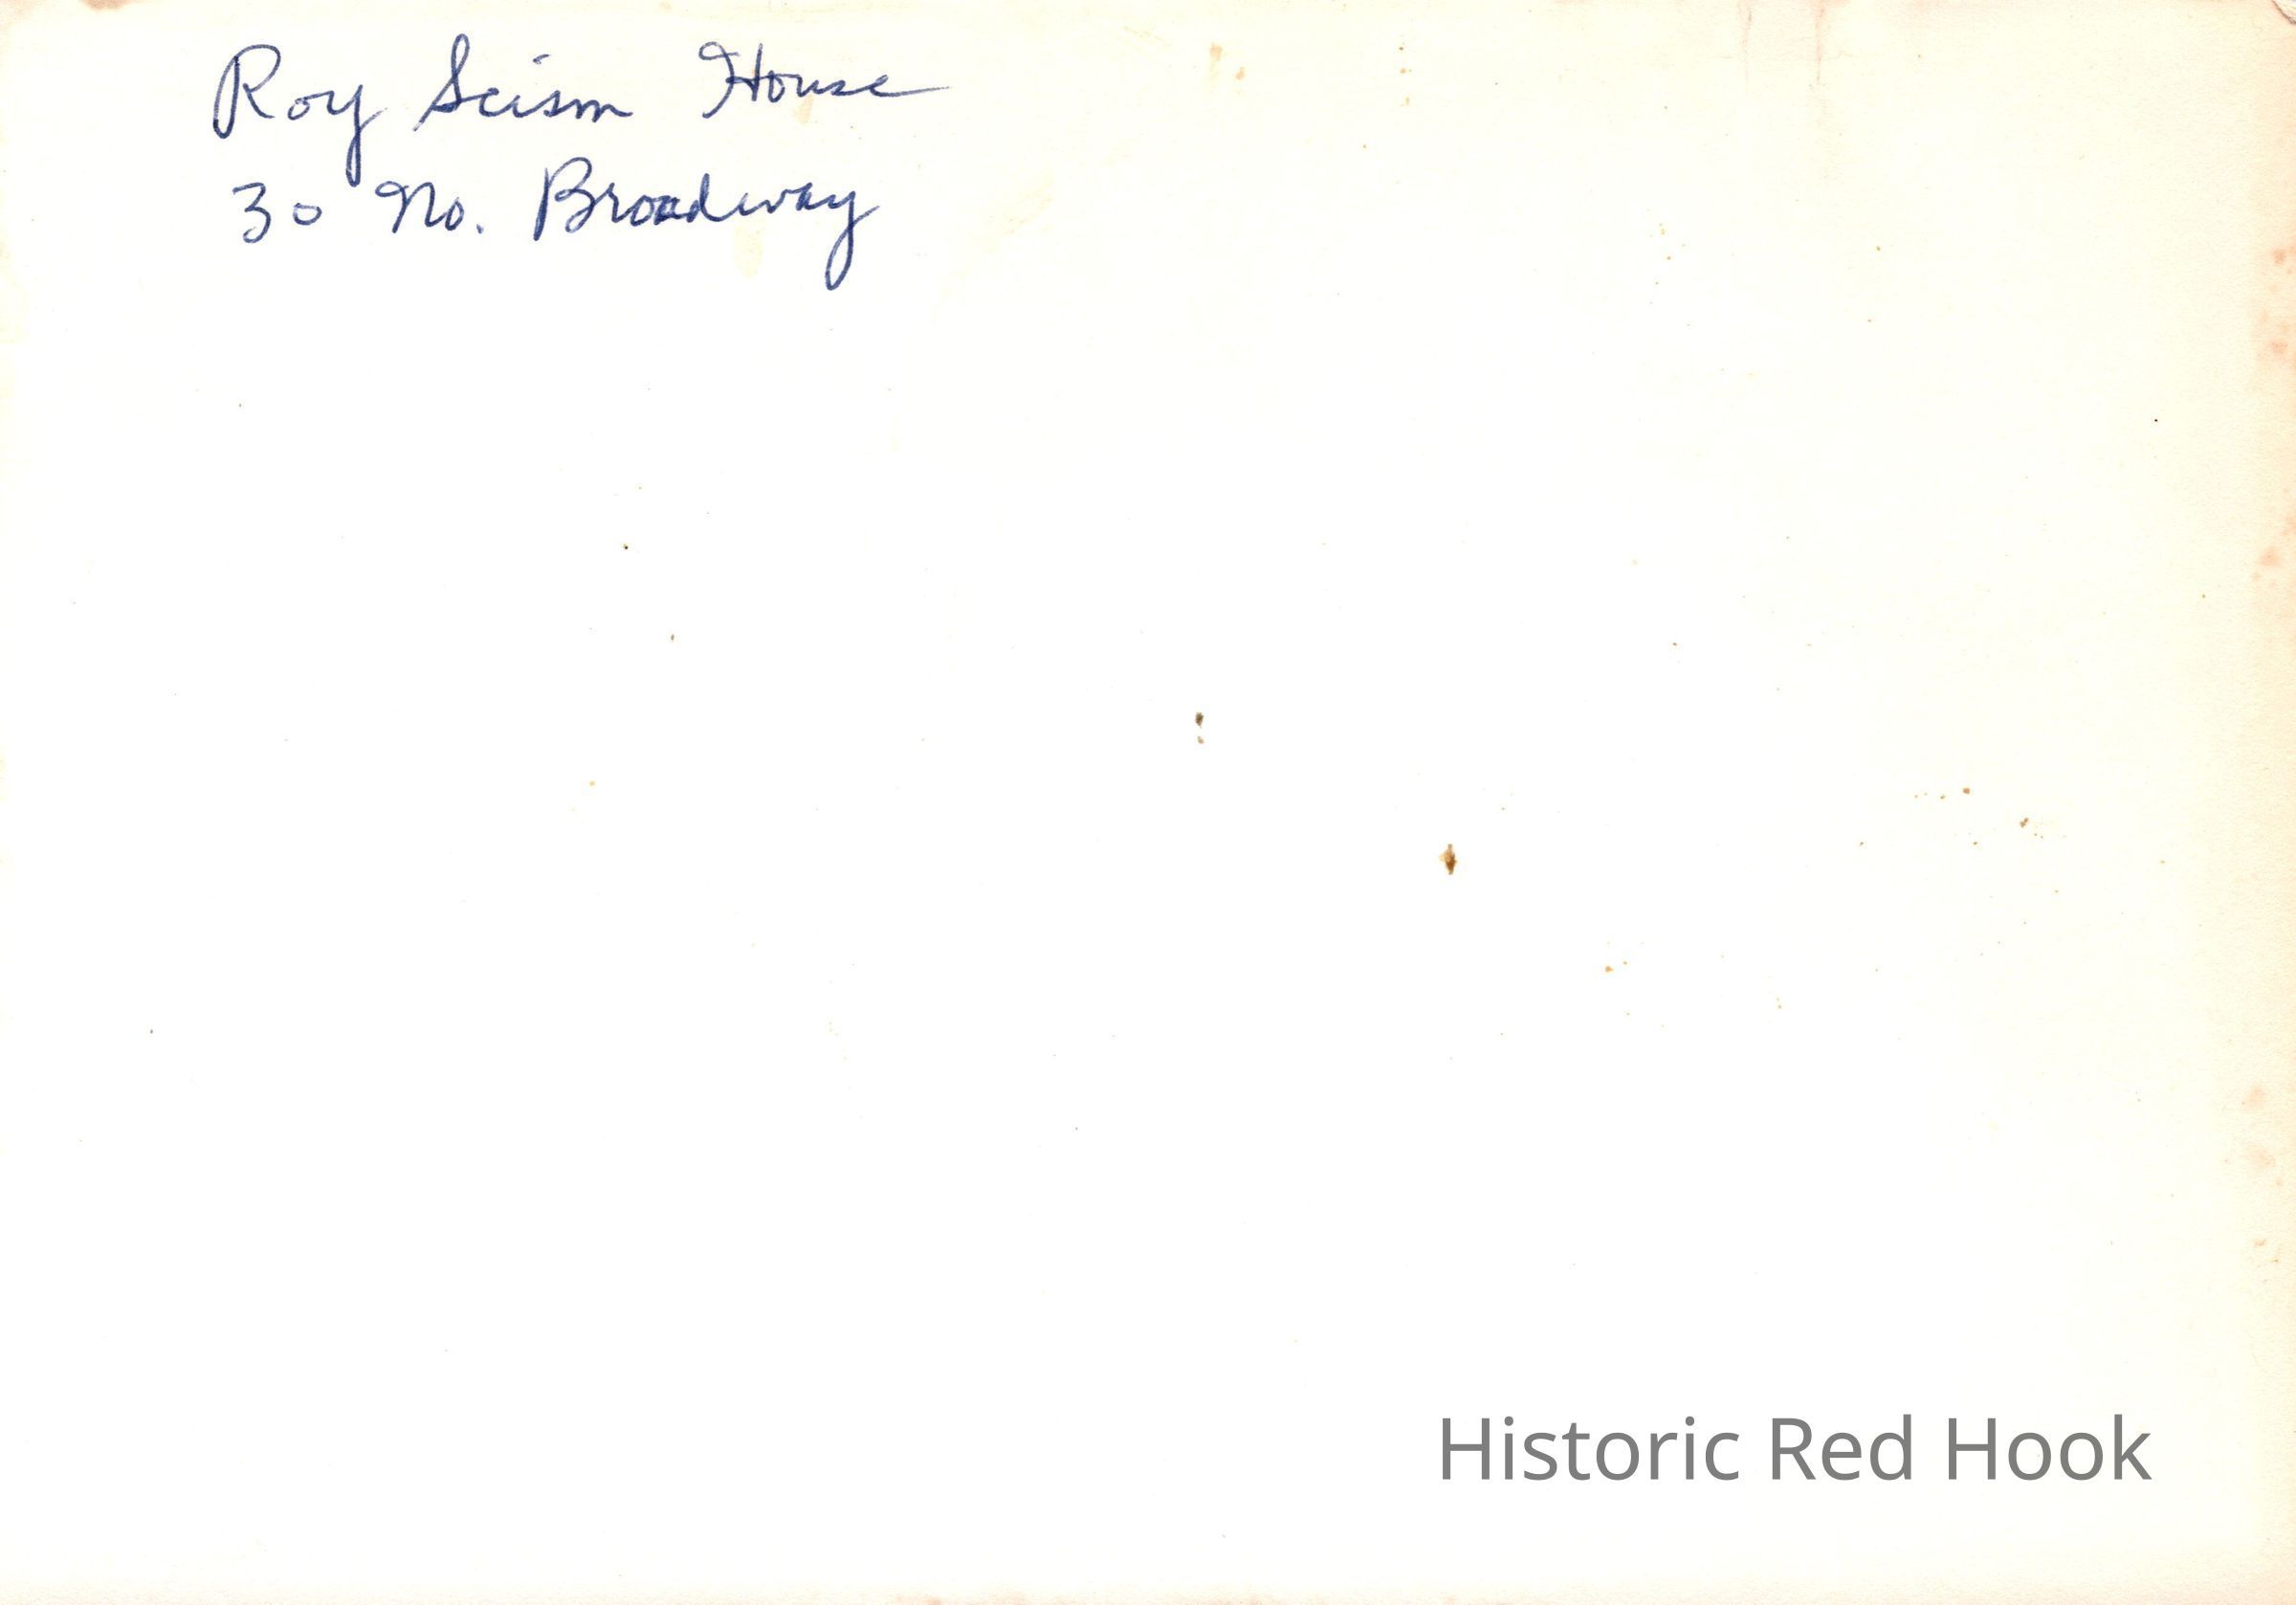 Roy Scism House
30 No. Broadway
Historic Red Hook